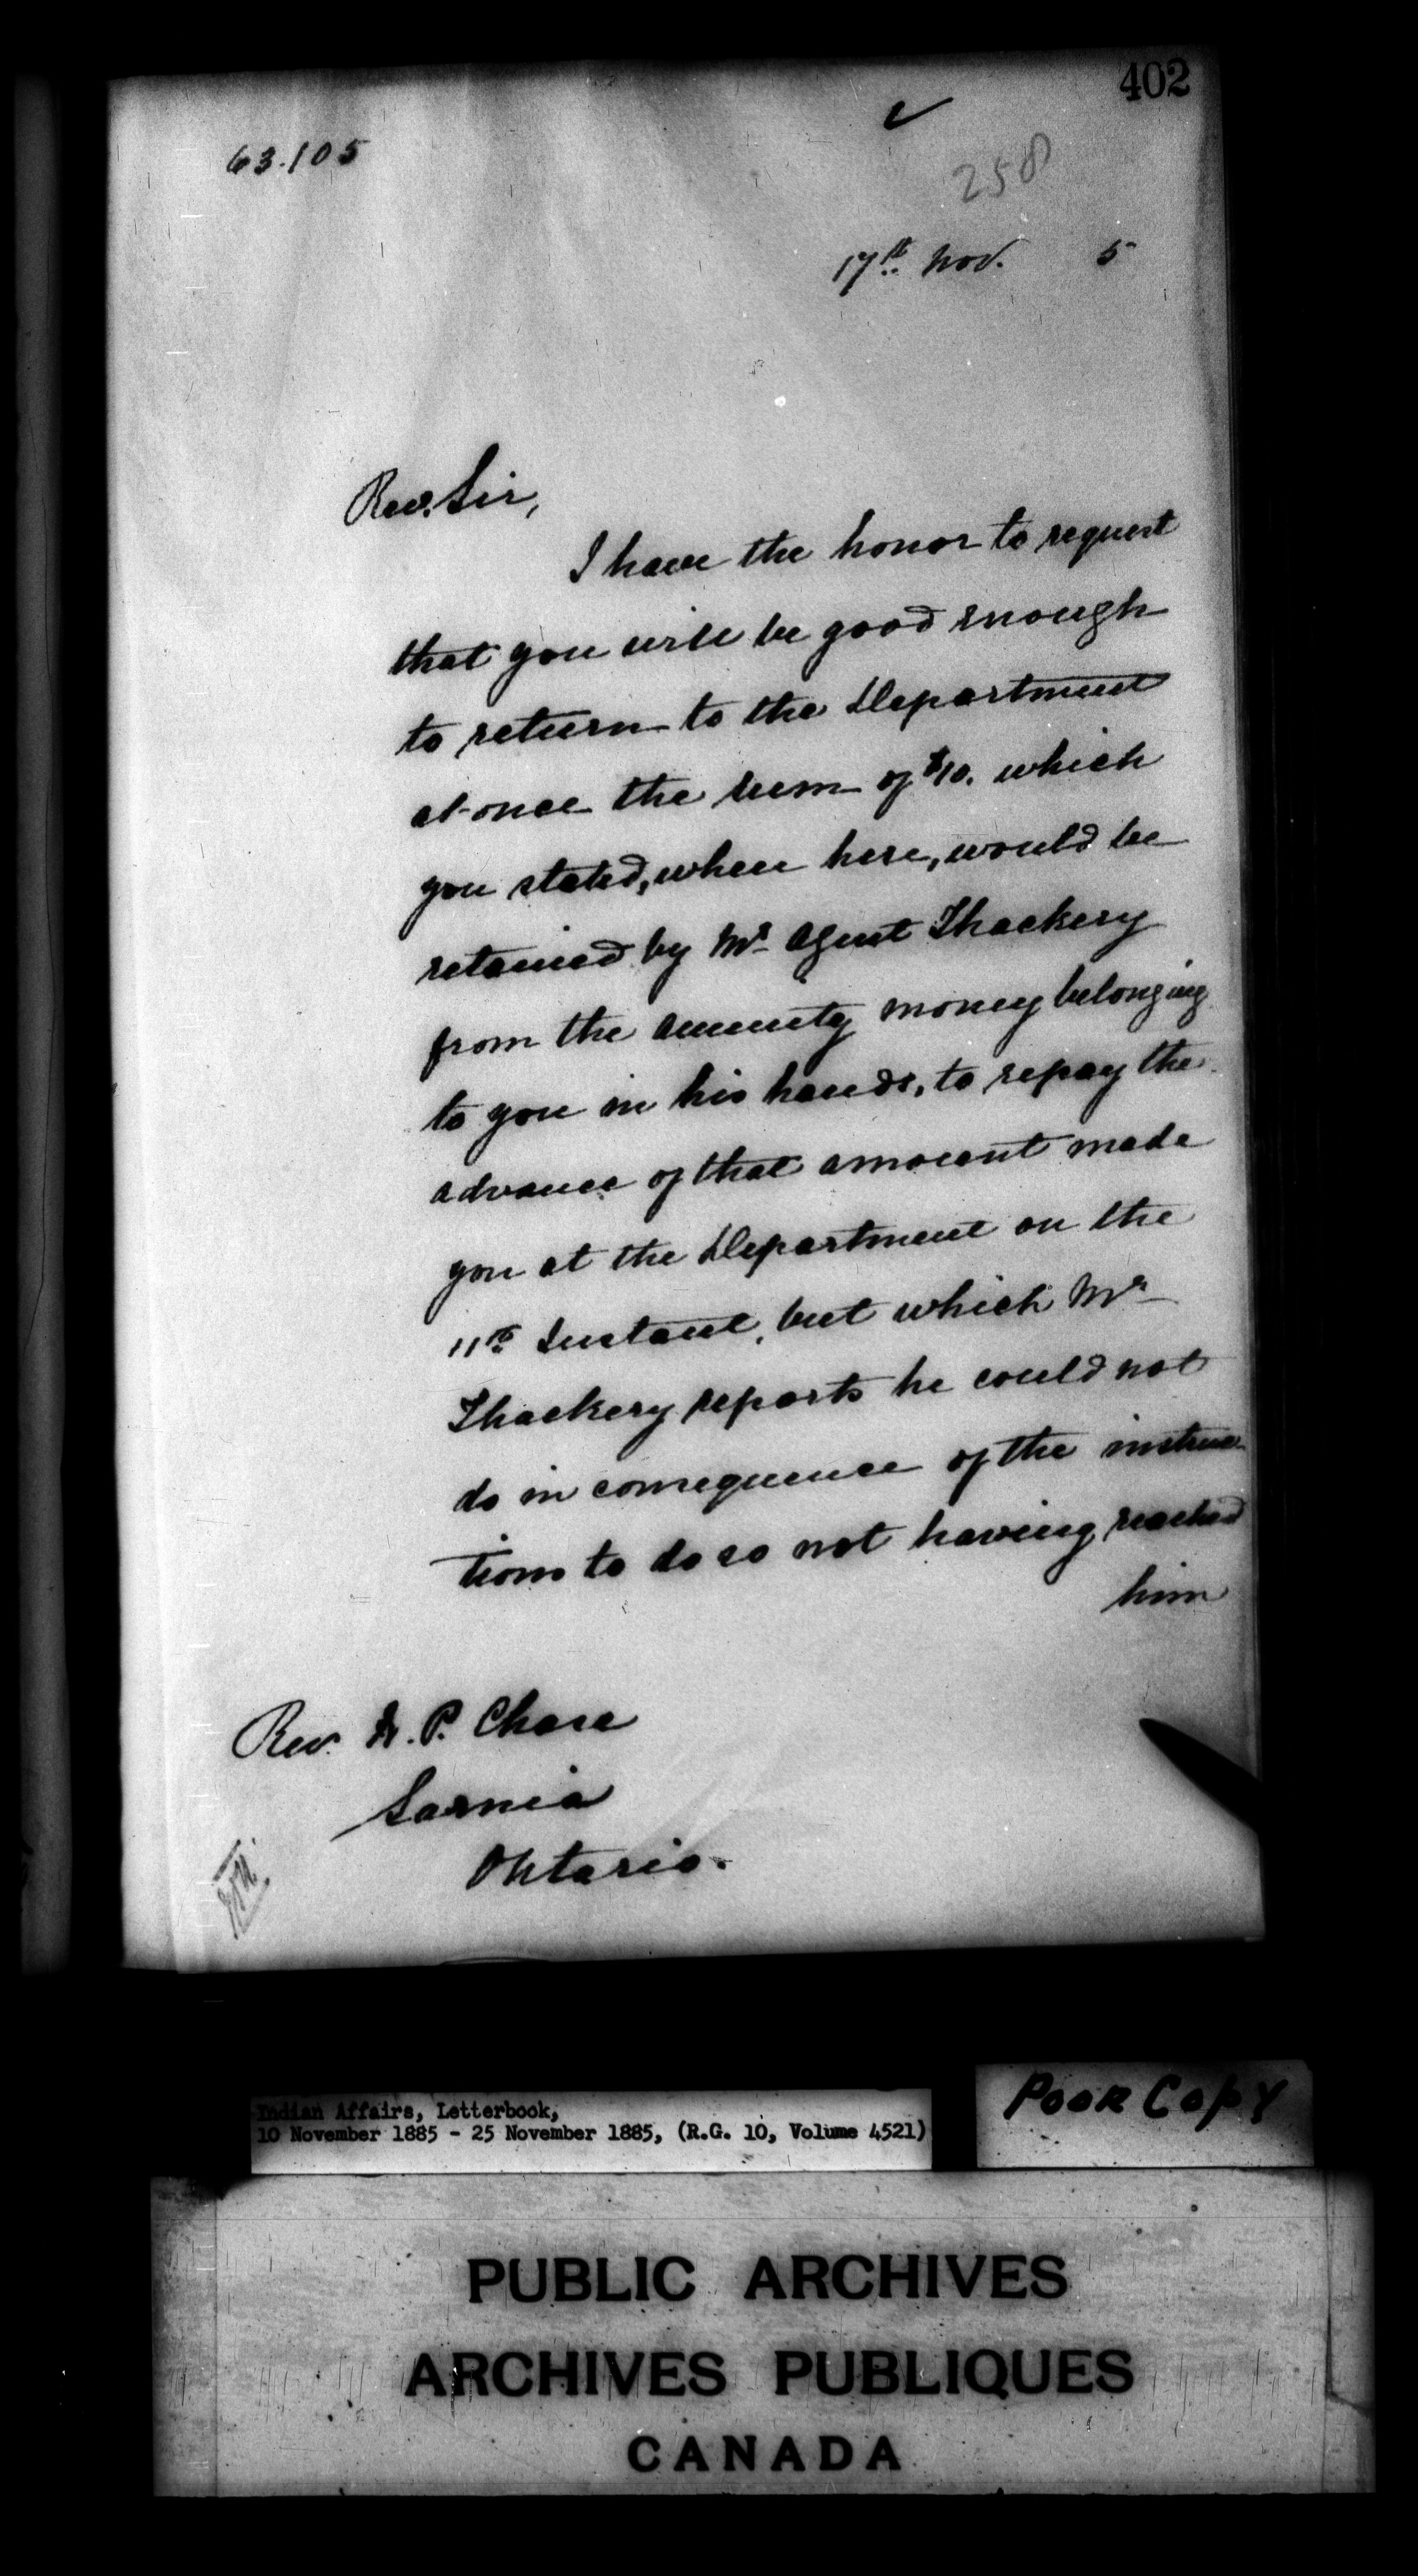 402
63.105
258
17th Nov. 5
Rev. Sir,
I have the honor to request
that you will be good enough
to return to the Department
at once the sum of $10. which
you stated, when here, would be
retained by Mr. Agent Thackery
from the annuity money belonging
to you in his hands, to repay the
advance of that amount made
you at the Department on the
11th Instant, but which Mr
Thackery reports he could not
do in consequence of the instruc-
tions to do so not having reached
him
Rev. H. P. Chase
Sarnia
Ontario.
Indian Affairs, Letterbook,
10 November 1885 - 25 November 1885, (R.G. 10, Volume 4521)
POOR COPY
PUBLIC ARCHIVES
ARCHIVES PUBLIQUES
CANADA